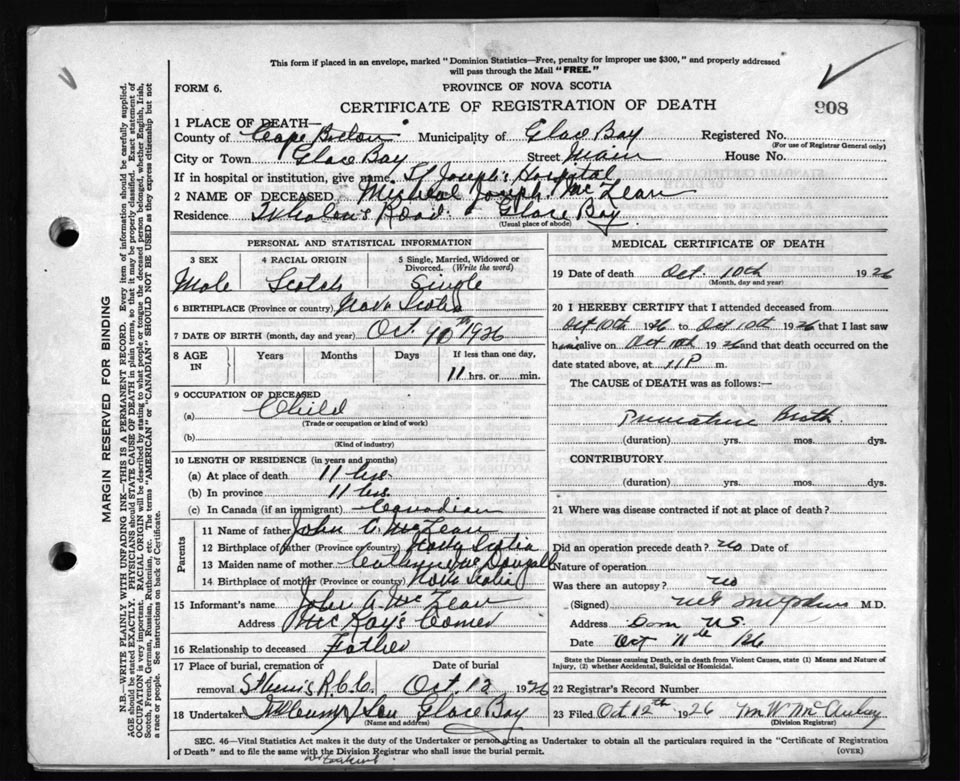 This form if placed in an envelope, marked "Dominion Statistics—Free, penalty for improper use $300," and properly addressed
will pass through the Mail "FREE."
FORM 6.
PROVINCE OF NOVA SCOTIA
CERTIFICATE OF REGISTRATION OF DEATH
908
1 PLACE OF DEATH—
County of Cape Breton Municipality of Glace Bay Registered No.
(For use of Registrar General only)
City or Town Glace Bay Street Main House No.
If in hospital or institution, give name St Joseph's Hospital
2 NAME OF DECEASED Micheal Joseph McLean
Residence Road. Glace Bay.
(Usual place of abode)
PERSONAL AND STATISTICAL INFORMATION
3 SEX 4 RACIAL ORIGIN 5 Single, Married, Widowed or Divorced. (Write the word)
Male Scotch Single
6 BIRTHPLACE (Province or country) Nova Scotia
7 DATE OF BIRTH (month, day and year) Oct 10th 1926
8 AGE IN Years Months Days If less than one day,
11 hrs. or min.
9 OCCUPATION OF DECEASED
(a) Child
(Trade or occupation or kind of work)
(b)
(Kind of industry)
10 LENGTH OF RESIDENCE (in years and months)
(a) At place of death 11 hrs.
(b) In province 11 hrs.
(c) In Canada (if an immigrant) Canadian
Parents
11 Name of father John A. McLean
12 Birthplace of father (Province or country) Nova Scotia
13 Maiden name of mother Catherine McDougall
14 Birthplace of mother (Province or country) Nova Scotia
15 Informant's name John A. McLean
Address McKay's Corner
16 Relationship to deceased Father
17 Place of burial, cremation or removal Date of burial
R.C.C. Oct. 12 1926
18 Undertaker & Son Glace Bay
(Name and address)
MEDICAL CERTIFICATE OF DEATH
19 Date of death Oct. 10th 1926
(Month, day and year)
20 I HEREBY CERTIFY that I attended deceased from
Oct 10th 1926 to Oct 10th 1926 that I last saw
him alive on Oct 10th 1926 and that death occurred on the
date stated above, at 11 P m.
The CAUSE of DEATH was as follows:—
Premature Birth.
(duration) yrs. mos. dys.
CONTRIBUTORY
(duration) yrs. mos. dys.
21 Where was disease contracted if not at place of death?
Did an operation precede death? no Date of
Nature of operation
Was there an autopsy? no
(Signed) M.D.
Address Dom N.S.
Date Oct 11th /26
State the Disease causing Death, or in death from Violent Causes, state (1) Means and Nature of
Injury, (2) whether Accidental, Suicidal or Homicidal.
22 Registrar's Record Number
23 Filed Oct 12th 1926
(Division Registrar)
SEC. 46—Vital Statistics Act makes it the duty of the Undertaker or person acting as Undertaker to obtain all the particulars required in the "Certificate of Registration
of Death" and to file the same with the Division Registrar who shall issue the burial permit.
(OVER)
MARGIN RESERVED FOR BINDING
N.B.—WRITE PLAINLY WITH UNFADING INK—THIS IS A PERMANENT RECORD. Every item of information should be carefully supplied.
AGE should be stated EXACTLY. PHYSICIANS should STATE CAUSE OF DEATH in plain terms, so that it may be properly classified. Exact statement of
OCCUPATION is very important. RACIAL ORIGIN will be described by stating to what people or tongue the deceased person belonged, whether English, Irish,
Scotch, French, German, Russian, Ruthenian, etc. The terms "AMERICAN" or "CANADIAN" SHOULD NOT BE USED as they express citizenship but not
a race or people. See instructions on back of Certificate.